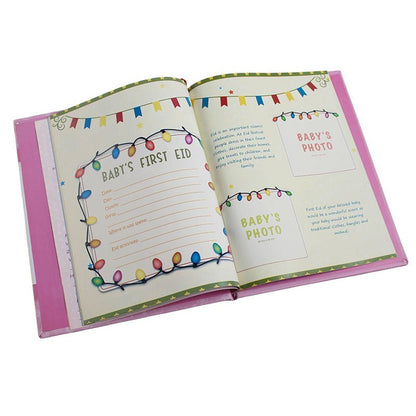 BABY'S FIRST EID
Date
Day
Where it was spent
Eid activities
Eid is an important Islamic
celebration. At Eid festival
people dress in their finest
clothes, decorate their homes,
give treats to children, and
enjoy visiting their friends and
family.
BABY'S
PHOTO
BABY'S
PHOTO
First Eid of your beloved baby
would be a wonderful scene as
your baby would be wearing
traditional clothes, bangles and